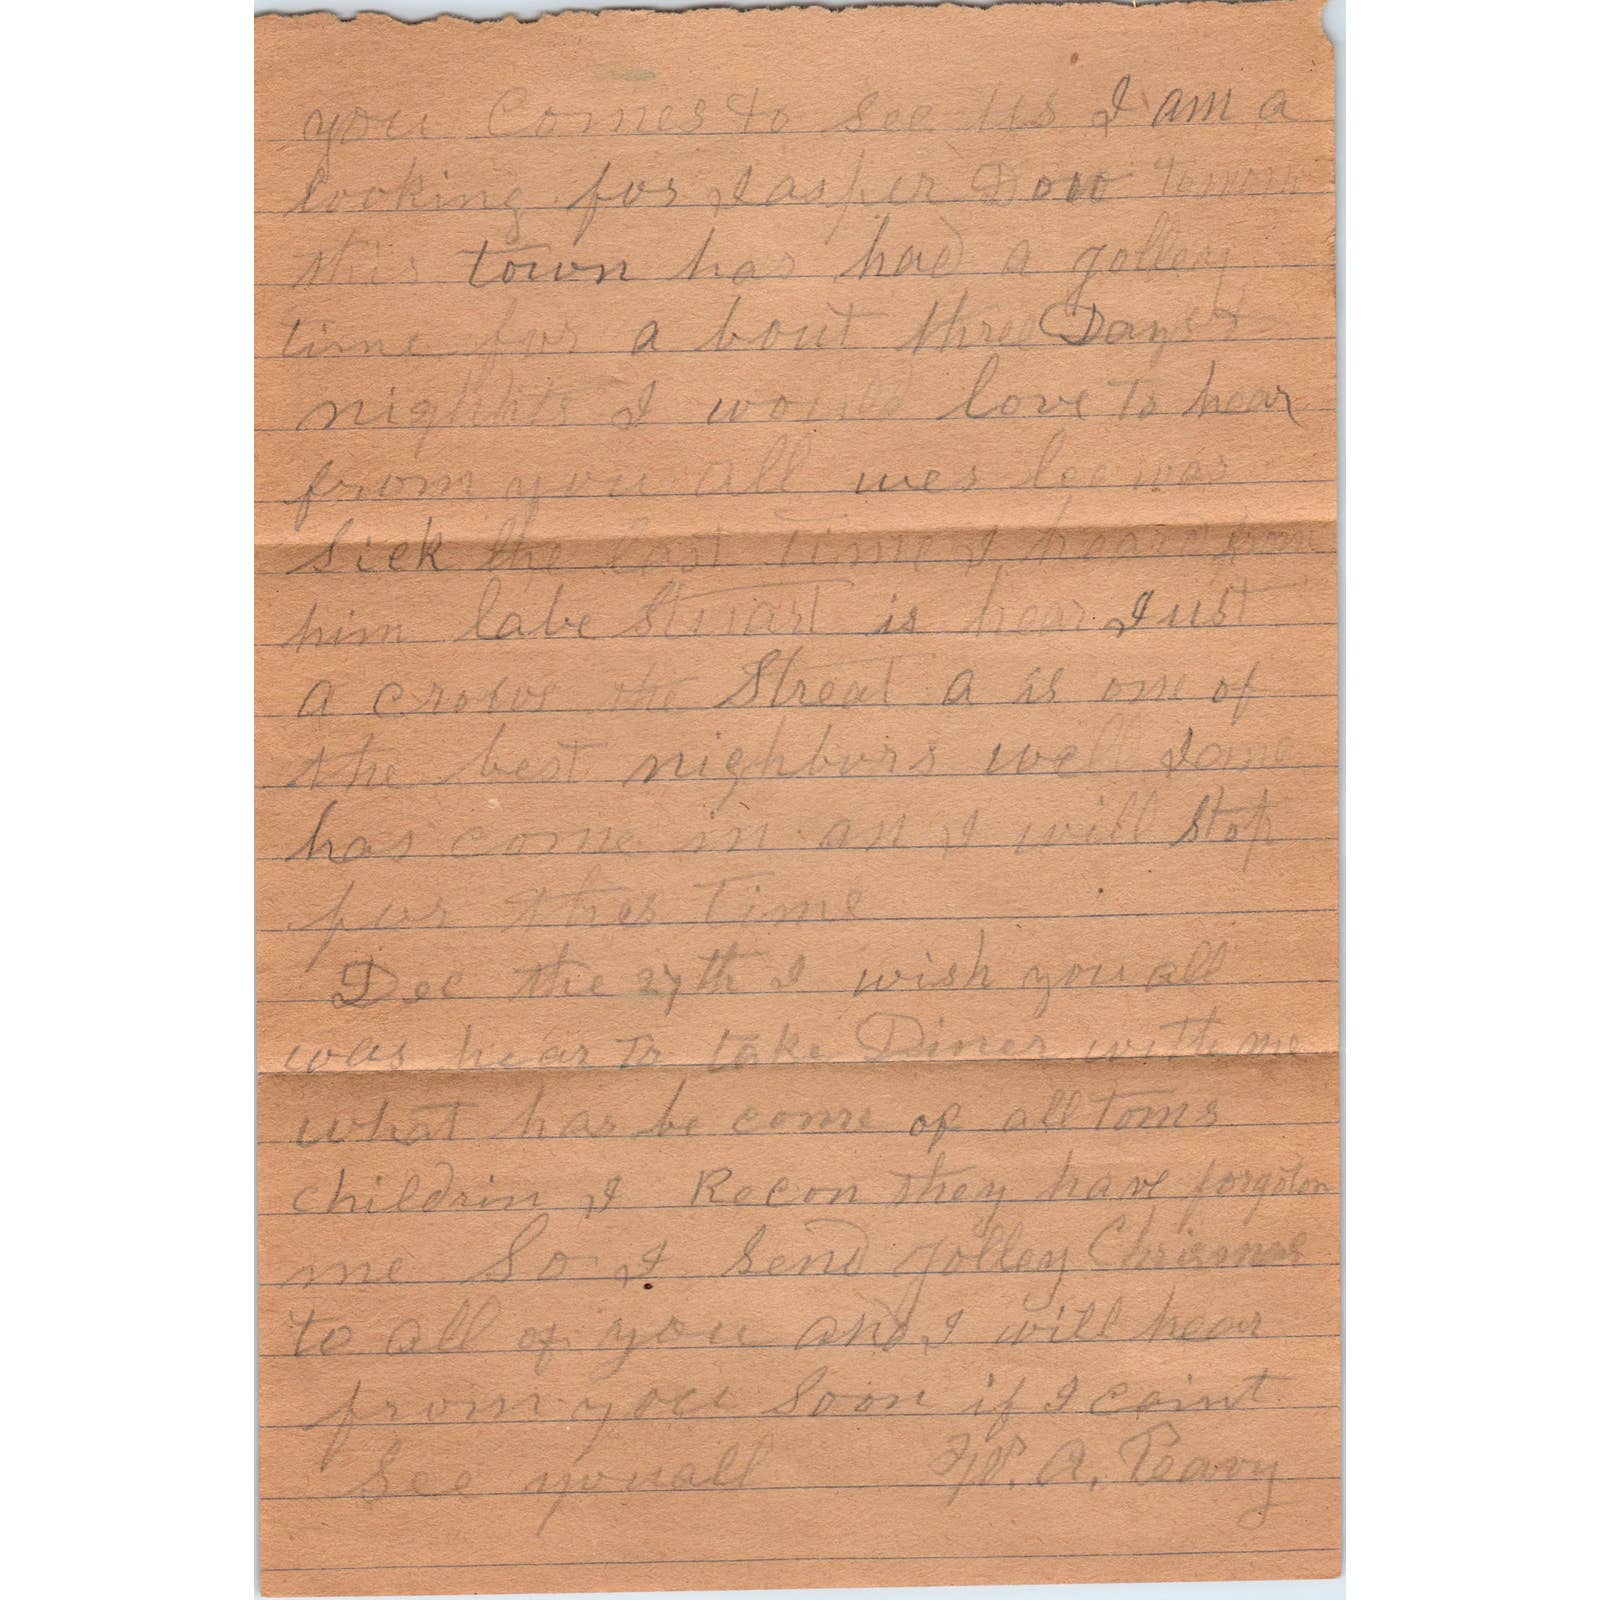 you Comes to see us I am a
looking for Jasper Dow
this town has had a golley
time for a bout three Days &
nights I would love to hear
from you all wes lee was
sick the last time I heard from
him labe Stuart is hear Just
a cross the Streat a is one of
the best nighburs well Some
has come in an I will Stop
for this time
Dec the 27th I wish you all
was hear to take Diner with me
what has be come of all toms
childrin I Recon they have forgoton
me So I Send golley Chrismas
to all of you and I will hear
from you Soon if I caint
See you all W. A. Peavy